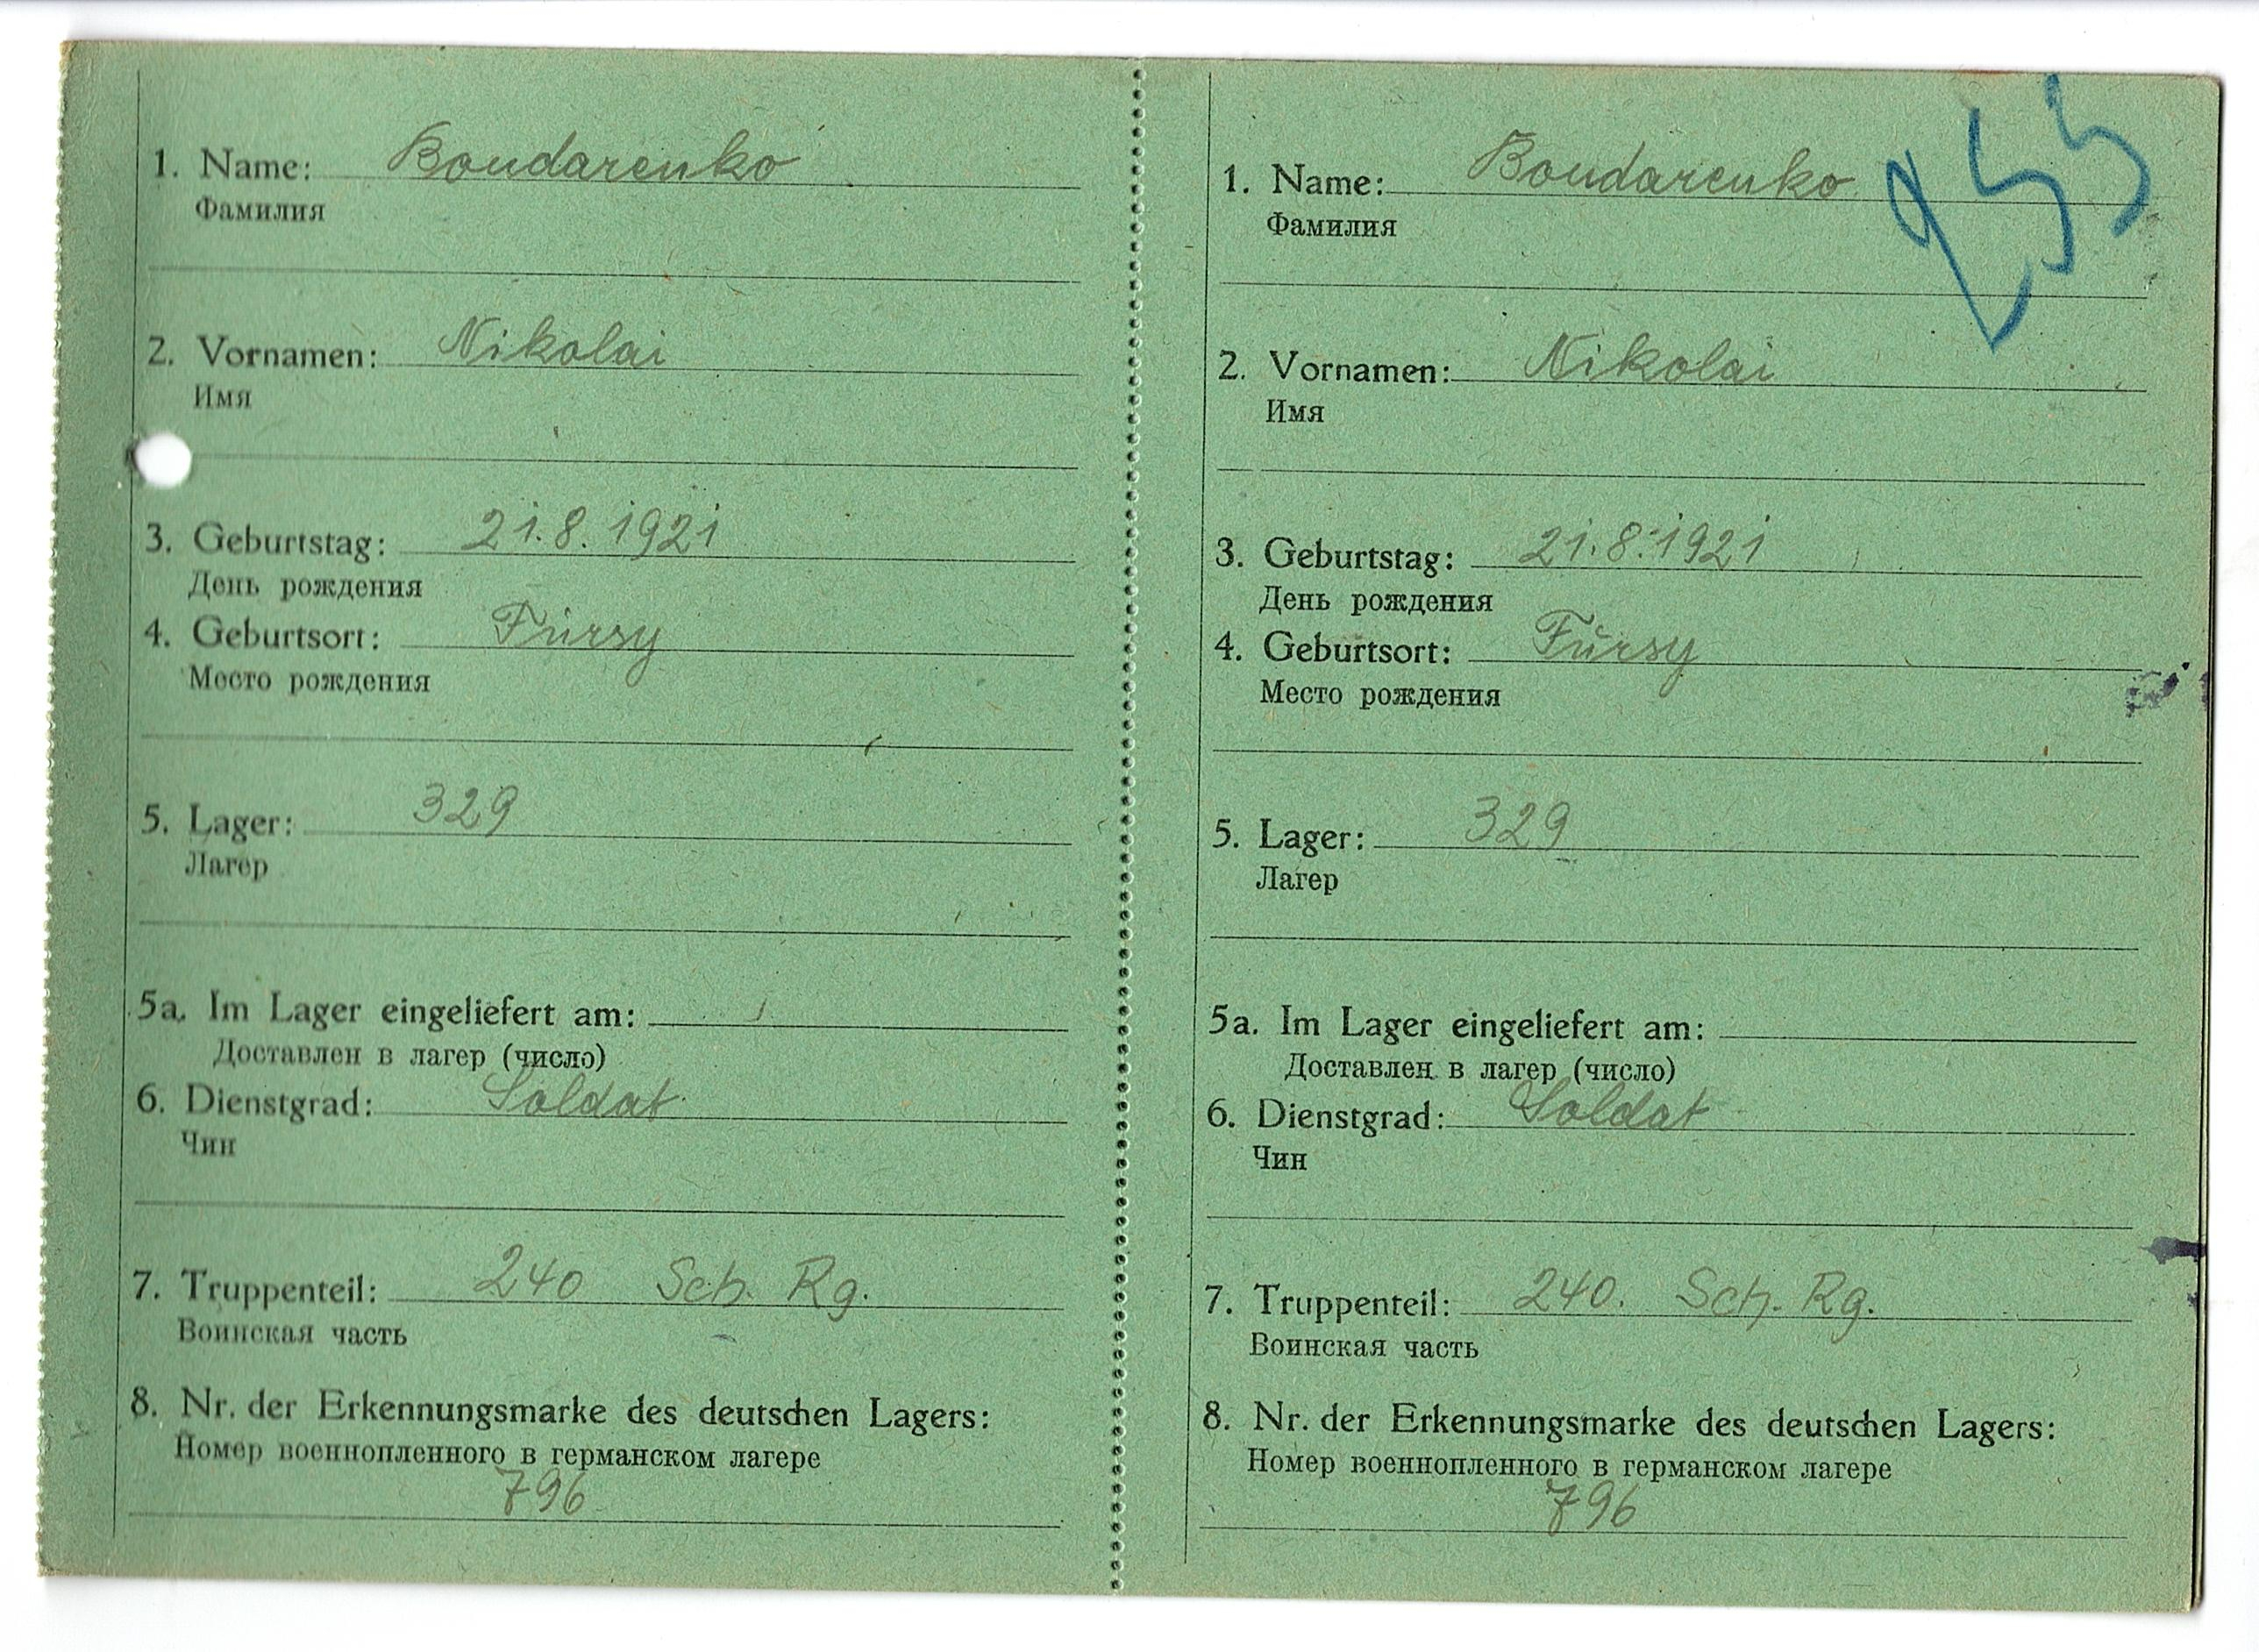 1. Name: Bondarenko
Фамилия
2. Vornamen: Nikolai
Имя
3. Geburtstag: 21.8.1921
День рождения
4. Geburtsort: Fursy
Место рождения
5. Lager: 329
Лагер
5a. Im Lager eingeliefert am:
Доставлен в лагер (число)
6. Dienstgrad: Soldat
Чин
7. Truppenteil: 240 Sch. Rg.
Воинская часть
8. Nr. der Erkennungsmarke des deutschen Lagers:
Номер военнопленного в германском лагере
796
255
1. Name: Bondarenko
Фамилия
2. Vornamen: Nikolai
Имя
3. Geburtstag: 21.8.1921
День рождения
4. Geburtsort: Fursy
Место рождения
5. Lager: 329
Лагер
5a. Im Lager eingeliefert am:
Доставлен в лагер (число)
6. Dienstgrad: Soldat
Чин
7. Truppenteil: 240. Sch. Rg.
Воинская часть
8. Nr. der Erkennungsmarke des deutschen Lagers:
Номер военнопленного в германском лагере
796